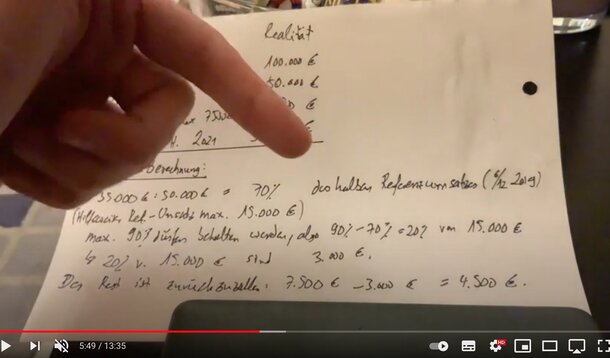 Realität
100.000 €
50.000 €
€
H. 2021
berechnung:
35.000 € : 50.000 € = 70% des halben Referenzumsatzes (6/12 2019)
Ref-Umsatz max. 15.000 €)
max. 90% dürfen behalten werden, also 90% - 70% = 20% von 15.000 €
↳ 20% v. 15.000 € sind 3.000 €.
Der Rest ist zurückzuzahlen: 7.500 € - 3.000 € = 4.500 €.
5:49 / 13:35
HD